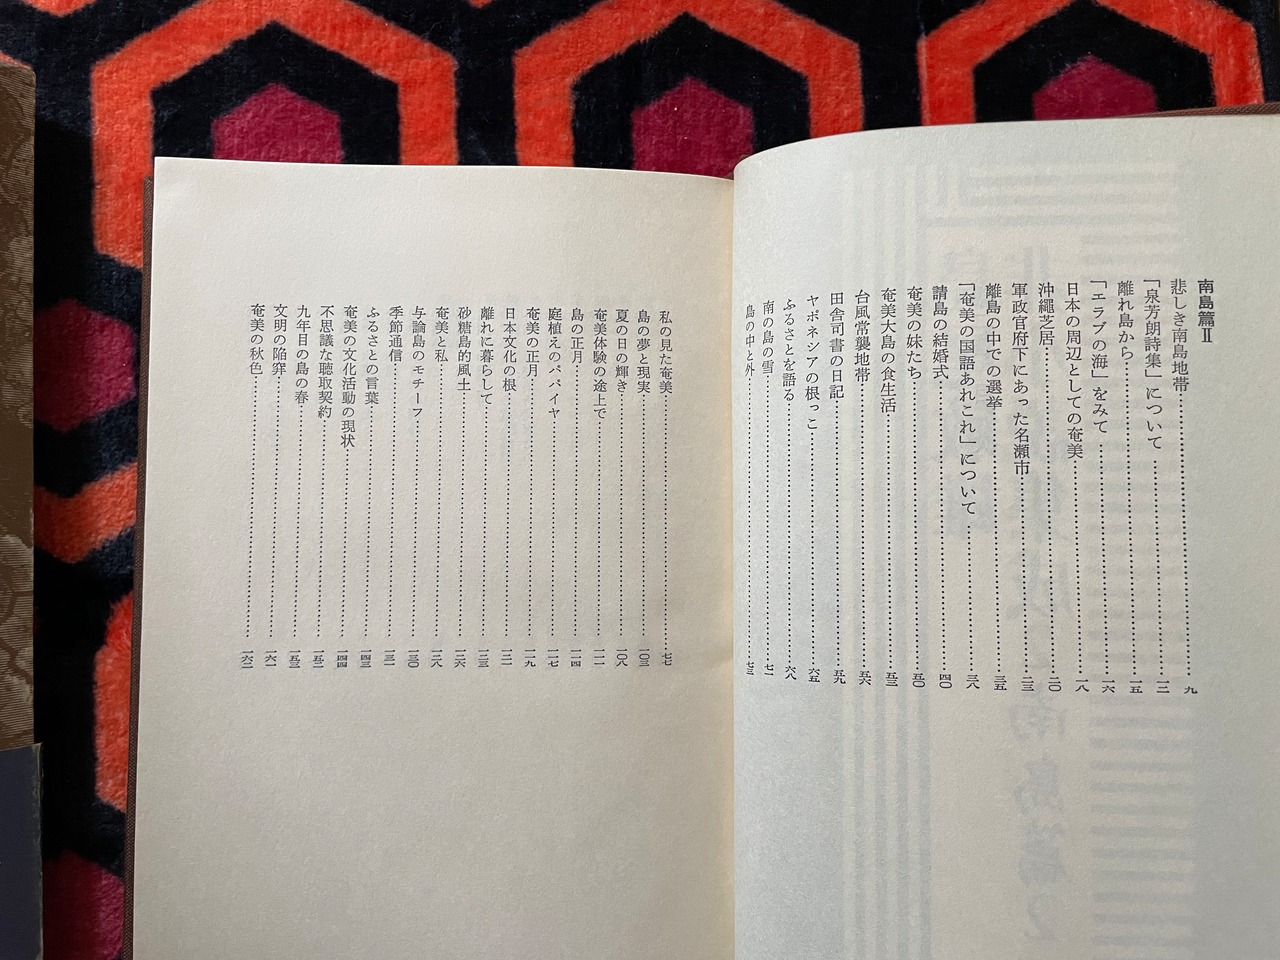 南島篇Ⅱ
悲しき南島地帯……九
「泉芳朗詩集」について……一二
離れ島から……一五
「エラブの海」をみて……一六
日本の周辺としての奄美……一八
沖縄芝居……二〇
軍政官府下にあった名瀬市……二三
離島の中での選挙……三五
「奄美の国語あれこれ」について……三八
請島の結婚式……四〇
奄美の妹たち……五〇
奄美大島の食生活……五三
台風常襲地帯……五六
田舎司書の日記……五九
ヤポネシアの根っこ……六五
ふるさとを語る……六八
南の島の雪……七一
島の中と外……七三
私の見た奄美……七七
島の夢と現実……一〇三
夏の日の輝き……一〇八
奄美体験の途上で……一一一
島の正月……一一四
庭植えのパパイヤ……一一七
奄美の正月……一一九
日本文化の根……一二一
離れに暮らして……一二三
砂糖島的風土……一二六
奄美と私……一二八
与論島のモチーフ……一三〇
季節通信……一三一
ふるさとの言葉……一四三
奄美の文化活動の現状……一四四
不思議な聴取契約……一五二
九年目の島の春……一五三
文明の陥穽……一六一
奄美の秋色……一六二